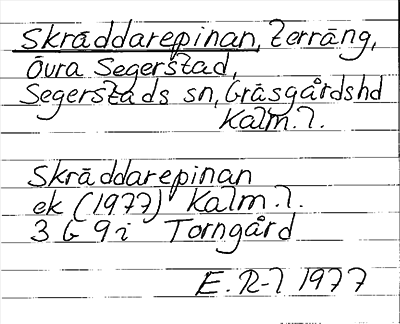 Skräddarepinan, terräng,
Övra Segerstad,
Segerstads sn, Gräsgårdshd
Kalm. l.
Skräddarepinan
ek (1977) Kalm. l.
3 G 9 i Torngård
E. R-l 1977